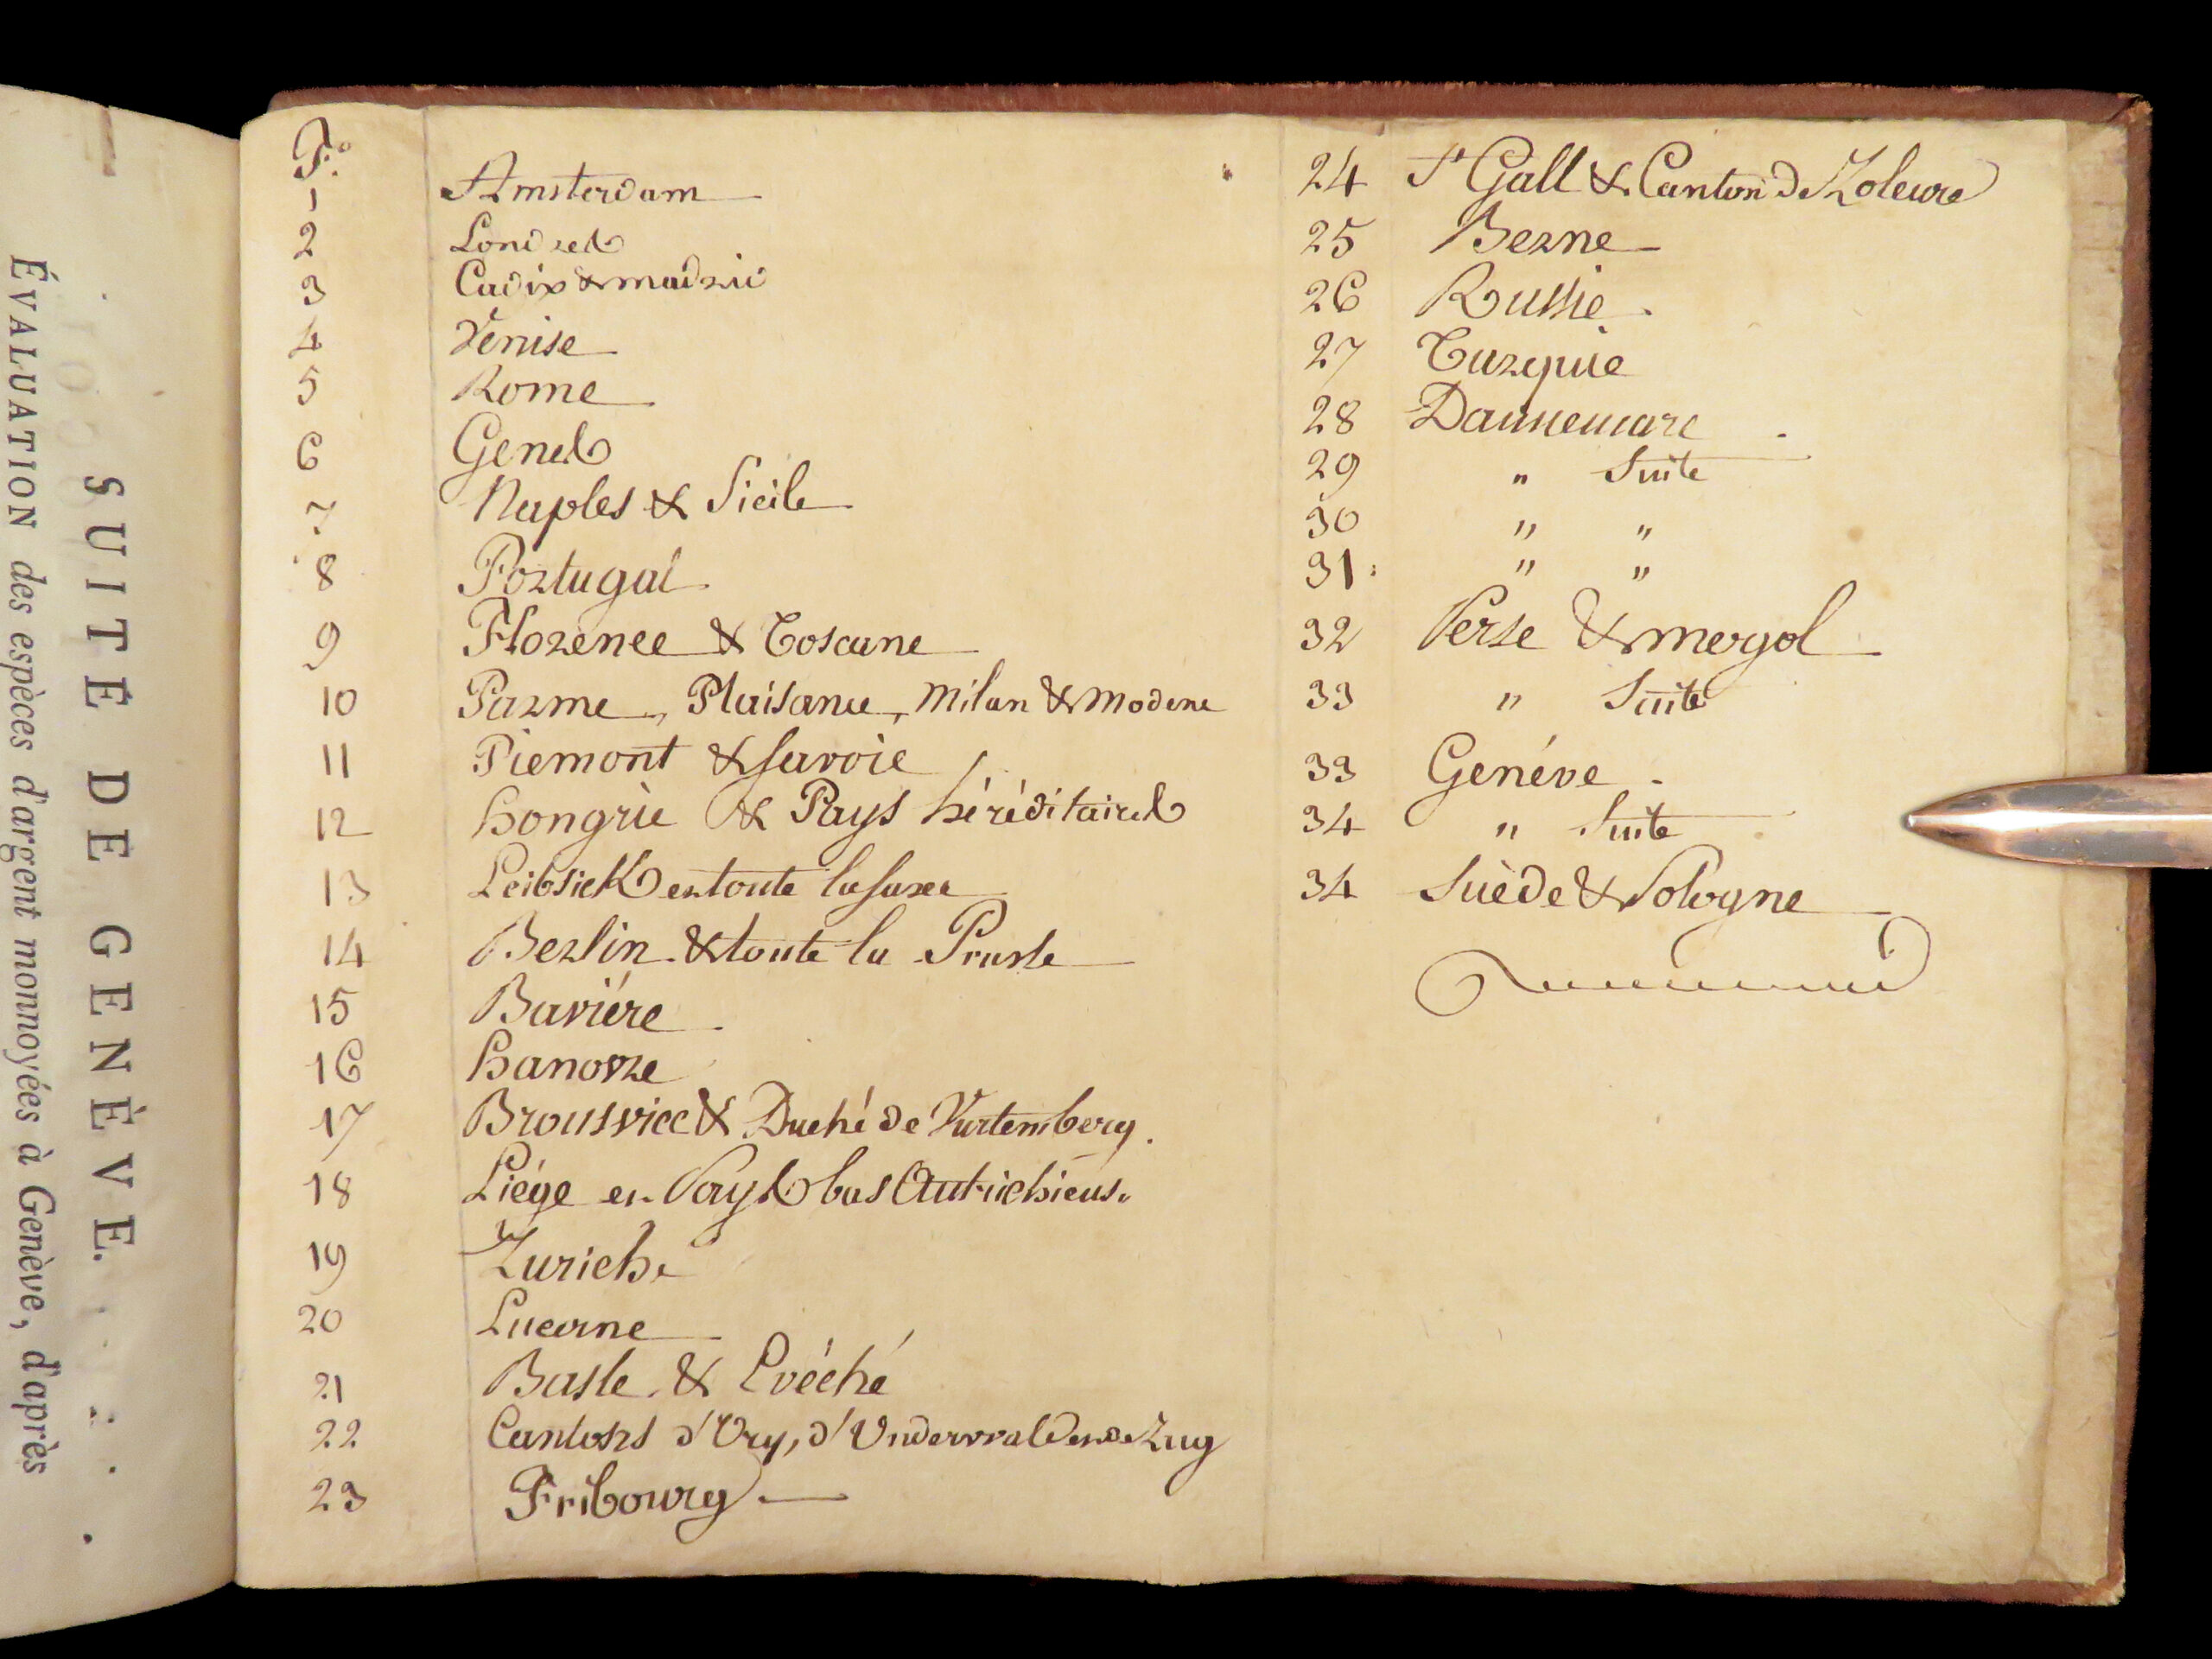 SUITE DE GENÈVE.
ÉVALUATION des espèces d'argent monnoyées à Genève, d'après
F.o
1 Amsterdam
2 Londres
3 Cadix & madrid
4 Venise
5 Rome
6 Genes
7 Naples & Sicile
8 Portugal
9 Florence & Toscane
10 Parme, Plaisance, Milan & Modene
11 Piemont & Savoie
12 hongrie & Pays héréditaires
13 Leibsick en toute la Saxe
14 Berlin & toute la Prusse
15 Baviére
16 hanovre
17 Brousvicc & Duché de Vurtemberg.
18 Liége en Pays bas Autrichiens.
19 Zurich
20 Lucerne
21 Basle & Evéché
22 Cantons d'Ury, d'Undervvalden de Zug
23 Fribourg
24 St Gall & Canton de Zoleure
25 Berne
26 Russie
27 Turquie
28 Dannemarc
29 " Suite
30 " "
31 " "
32 Perse & mogol
33 " Suite
33 Genéve
34 " Suite
34 Suède & Pologne